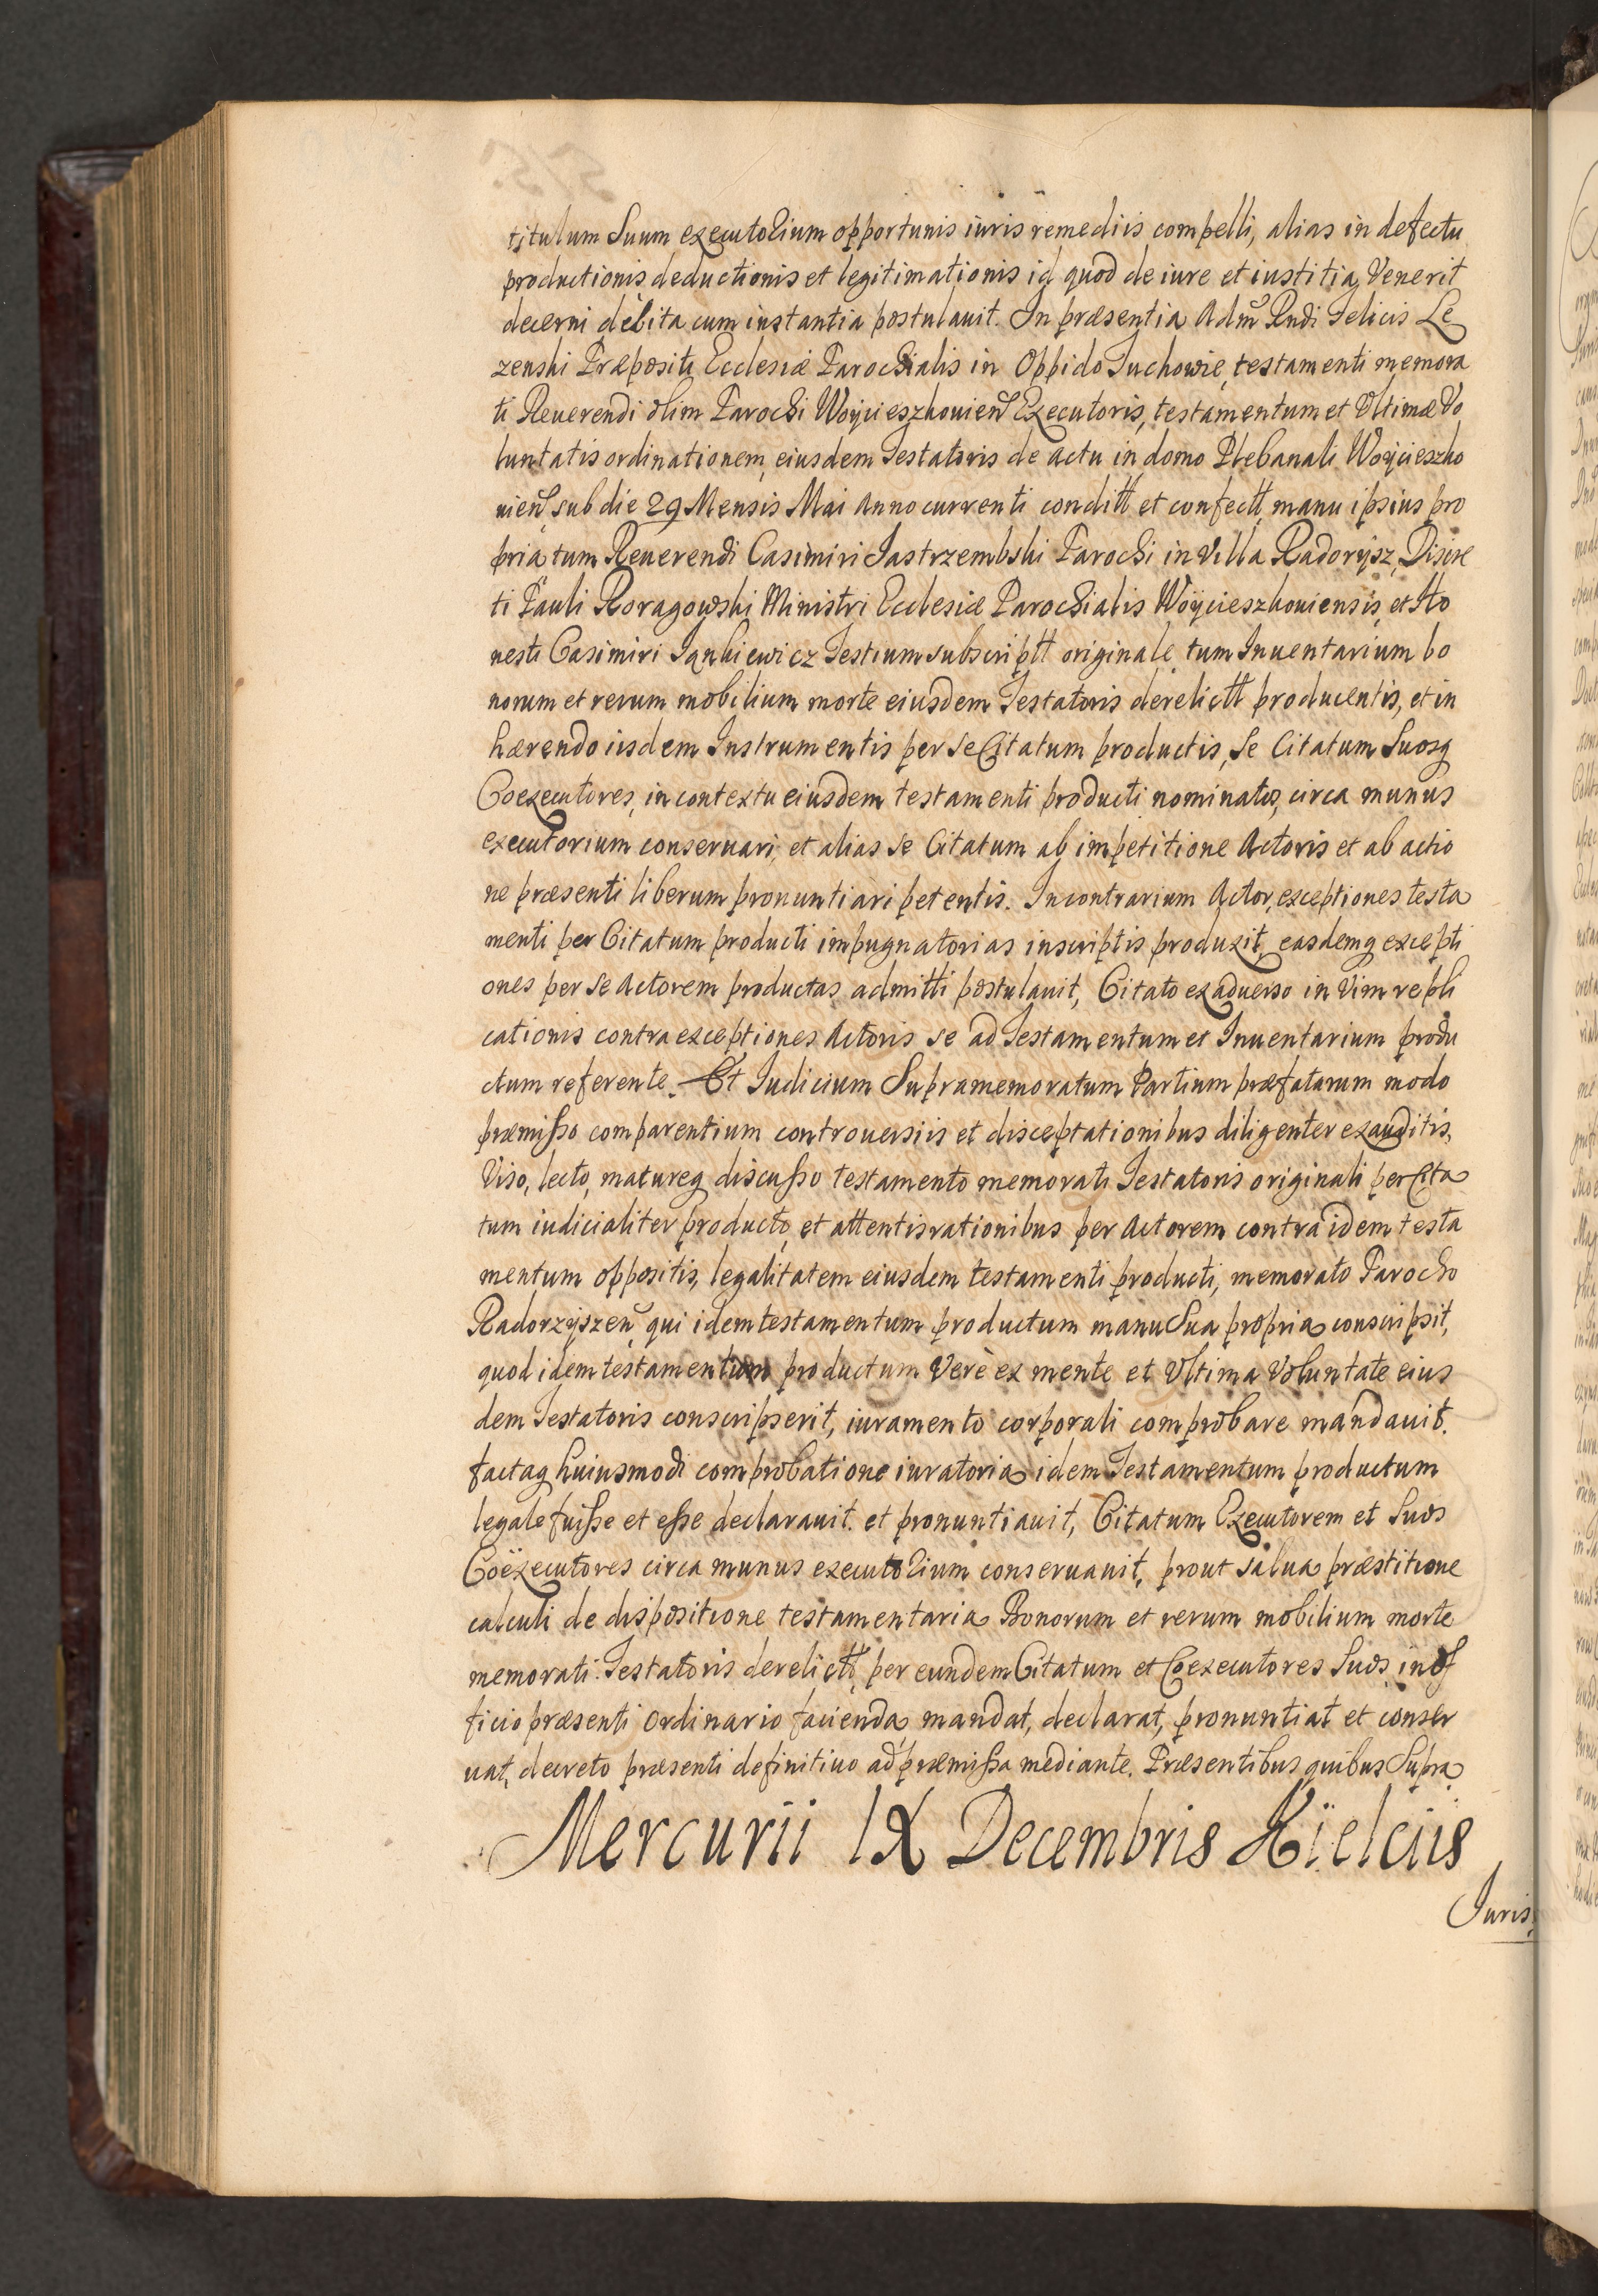 titulum suum executorium opportunis iuris remediis compelli, alias in defectu
productionis deductionis et legitimationis id quod de iure et iustitia venerit
decerni debita cum instantia postulauit. In præsentia Adm Rndi Felicis Le
zenski Præpositi Ecclesiæ Parochialis in Oppido Tuchowie, testamenti memora
ti Reuerendi olim Parochi Woycieszkouien Executoris, testamentum et Vltimæ Vo
luntatis ordinationem eiusdem Testatoris de actu in domo Plebanali Woycieszko
uien sub die 29 Mensis Mai Anno currenti conditt et confectt manu ipsius pro
pria tum Reuerendi Casimiri Jastrzembski Parochi in Villa Radoryisz, Discre
ti Pauli Roragowski Ministri Ecclesiæ Parochialis Woycieszkouiensis, et Ho
nesti Casimiri Jankiewicz Testium subscriptt originale, tum Inuentarium bo
norum et rerum mobilium morte eiusdem Testatoris derelictt producentis, et in
hærendo iisdem Instrumentis per se Citatum productis, se Citatum Suosq
Coexecutores, in contextu eiusdem testamenti producti nominatos, circa munus
executorium conseruari, et alias se Citatum ab impetitione Actoris et ab actio
ne præsenti liberum pronuntiari petentis. In contrarium Actor, exceptiones testa
menti per Citatum producti impugnatorias in scriptis produxit, easdemq excepti
ones per se Actorem productas admitti postulauit, Citato ex aduerso in Vim repli
cationis contra exceptiones Actoris se ad Testamentum et Inuentarium produ
ctum referente. Et Iudicium Supramemoratum Partium præfatarum modo
præmisso comparentium controuersiis et disceptationibus diligenter exauditis,
Viso, lecto, matureq discusso testamento memorati Testatoris originali per Cita
tum iudicialiter producto, et attentis rationibus per Actorem contra idem testa
mentum oppositis, legalitatem eiusdem testamenti producti, memorato Parocho
Radorzyszen qui idem testamentum productum manu Sua propria conscripsit,
quod idem testamentum productum Verè ex mente et Vltima Voluntate eius
dem Testatoris conscripserit, iuramento corporali comprobare mandauit.
factaq huiusmodi comprobatione iuratoria idem Testamentum productum
legale fuisse et esse declarauit et pronuntiauit, Citatum Executorem et Suos
Coëxecutores circa munus executorium conseruauit, prout salua præstitione
calculi de dispositione testamentaria Bonorum et rerum mobilium morte
memorati Testatoris derelictt, per eundem Citatum et Coexecutores Suos in of
ficio præsenti Ordinario facienda mandat, declarat, pronuntiat et conser
uat, decreto præsenti definitiuo ad præmissa mediante. Præsentibus quibus Supra
Mercurii IX Decembris Kielciis
Iuris.